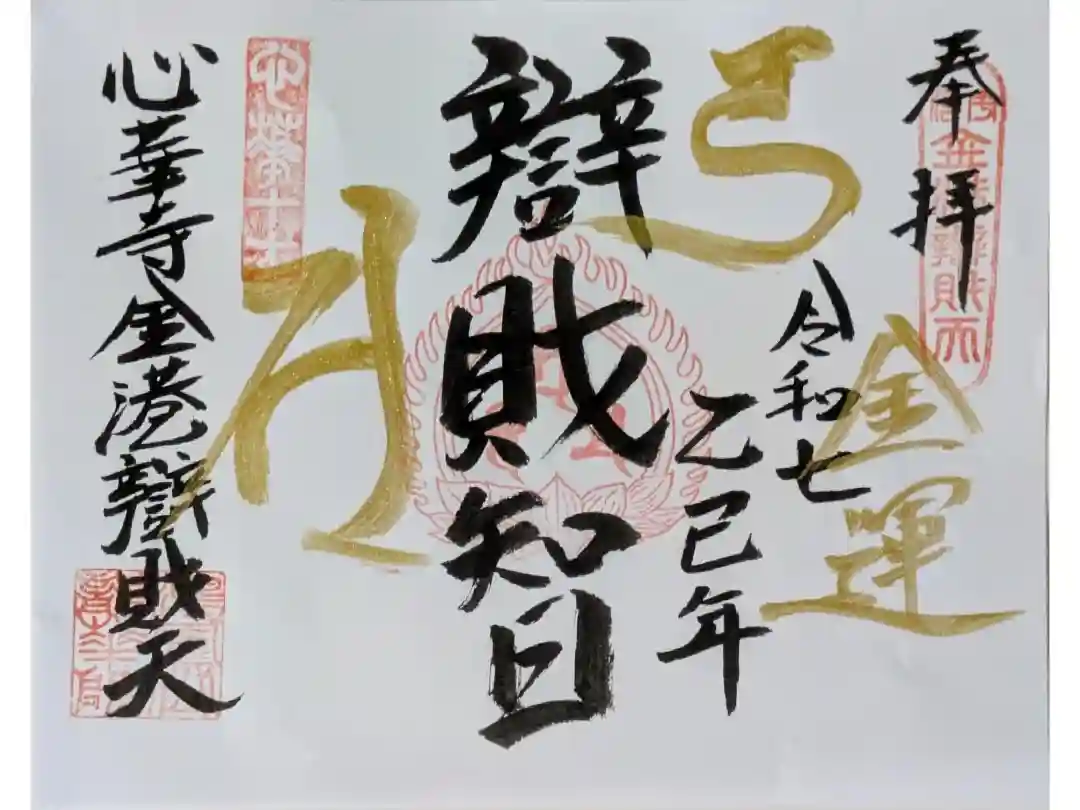 奉拝
金運
令和七
乙巳年
巳
辯財智
心華寺金港辯財天